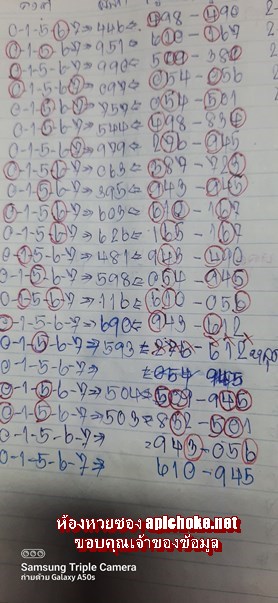 0-1-5-6-7⇒ 446 = 498 - 490
0-1-5-6-7⇒ 951 = 610 - 167
0-1-5-6-7⇒ 990 = 509 - 380
0-1-5-6-7⇒ 097 = 054 - 056
0-1-5-6-7⇒ 757 = 054 - 501
0-1-5-6-7⇒ 544 = 498 - 834
0-1-5-6-7⇒ 979 = 276 - 945
0-1-5-6-7⇒ 063 = 587 - 723
0-1-5-6-7⇒ 395 = 943 - 945
0-1-5-6-7⇒ 603 = 612 - 167
0-1-5-6-7⇒ 626 = 165 - 167
0-1-5-6-7⇒ 481 = 943 - 490
0-1-5-6-7⇒ 598 = 054 - 945
0-1-5-6-7⇒ 116 = 610 - 056
0-1-5-6-7⇒ 690 = 943 - 612
0-1-5-6-7⇒ 593 = 276 - 612
0-1-5-6-7⇒ = 054 945
0-1-5-6-7⇒ 504 = 509 - 945
0-1-5-6-7⇒ 503 = 852 - 501
0-1-5-6-7⇒ = 943 - 056
0-1-5-6-7⇒ 610 - 945
ห้องหวยซอง apichoke.net
ขอบคุณเจ้าของข้อมูล
Samsung Triple Camera
ถ่ายด้วย Galaxy A50s